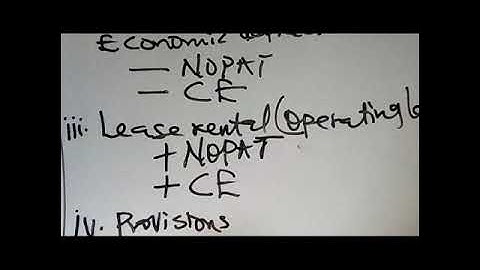 Economic
— NOPAT
— CE
iii. Lease rental (Operating
+ NOPAT
+ CE
iv. Provisions